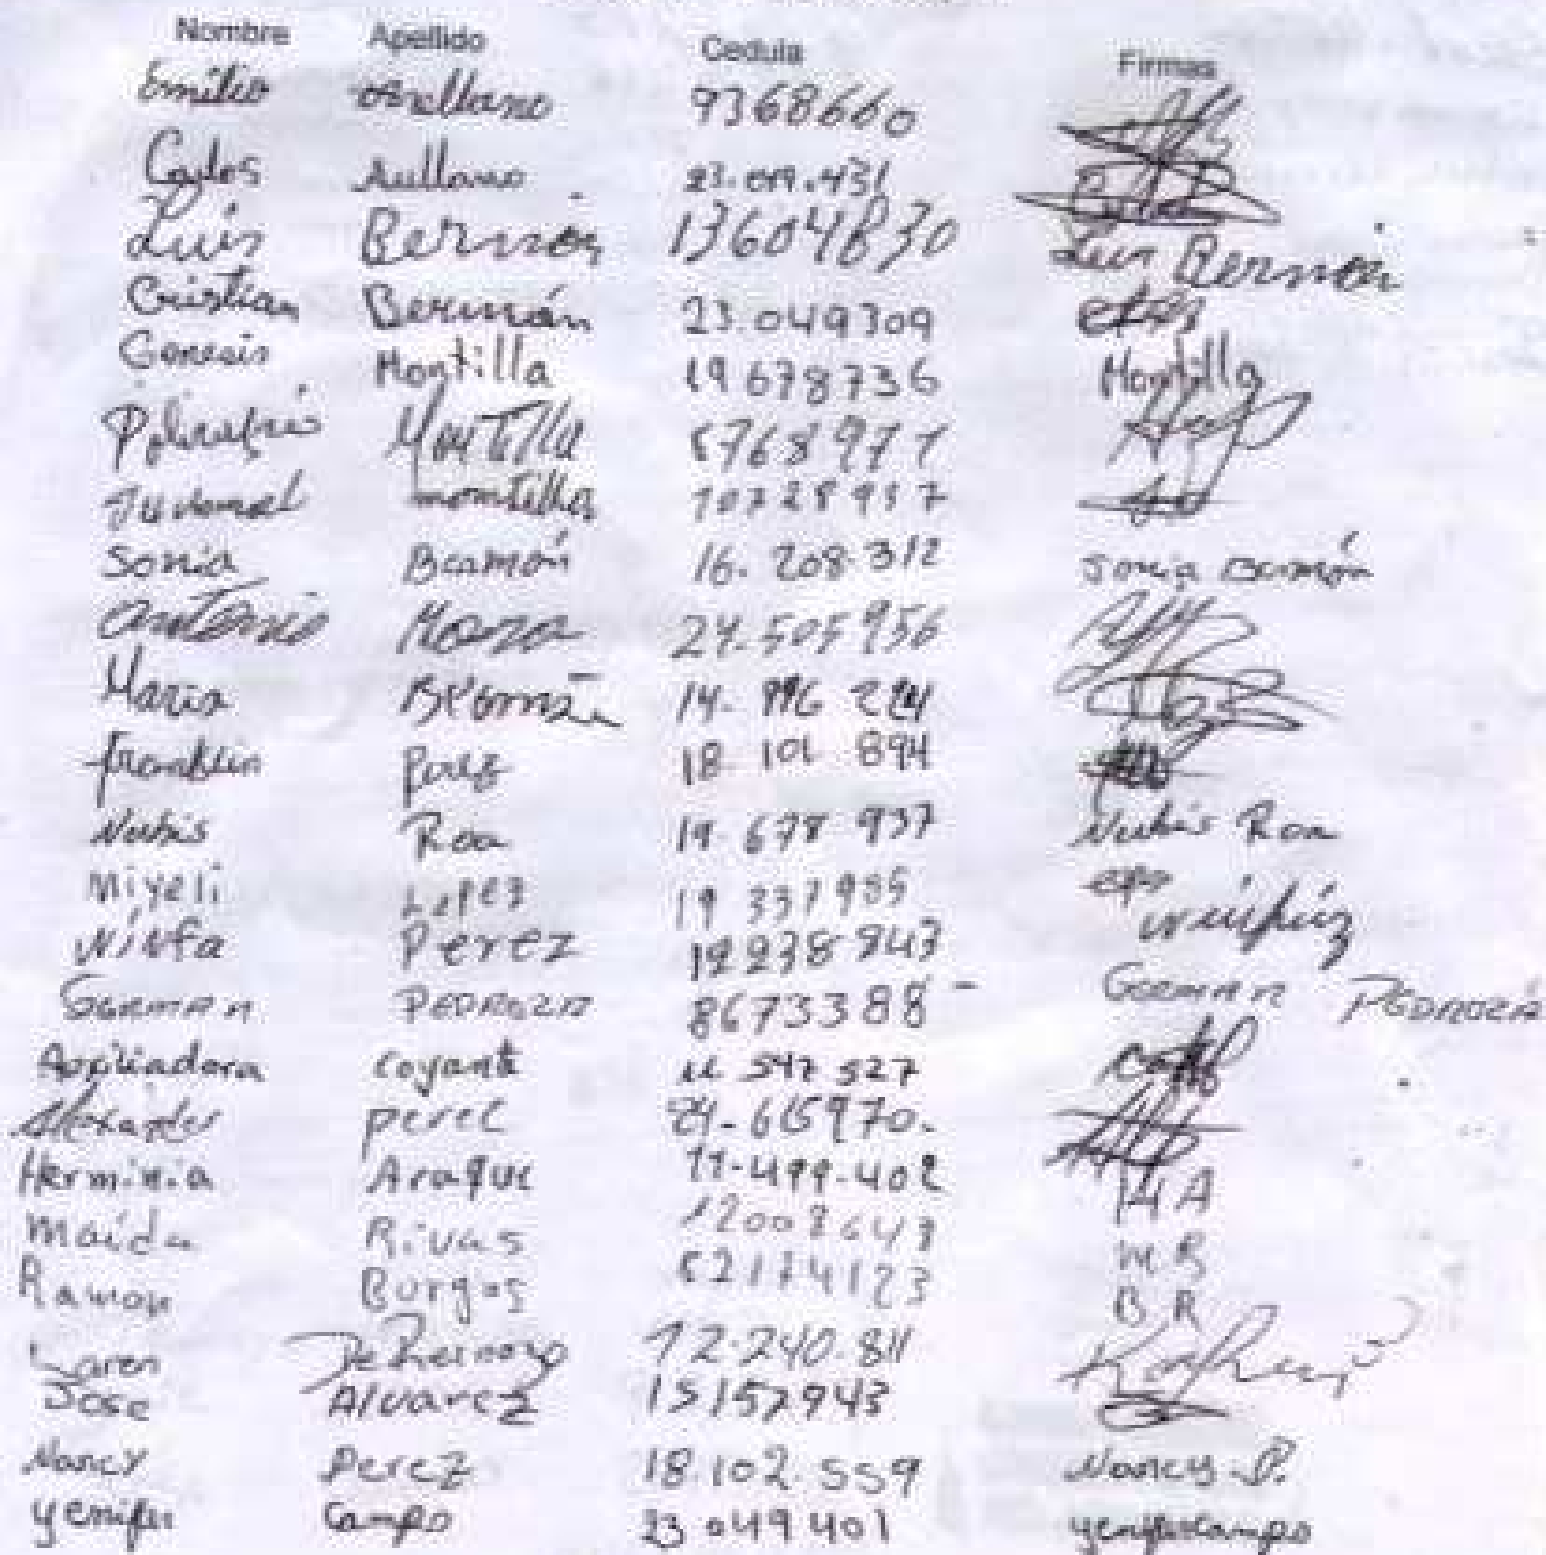 Nombre Apellido Cedula Firmas
Emilio Arellano 9368660
Carlos Arellano 23.049.431
Luis Bermón 13604830 Luis Bermón
Cristian Bermón 23.049309
Genesis Montilla 19678736 Montilla
Montilla 5768977
Juvenal montilla 10728937
Sonia Bcomón 16.208.312 Sonia Bcomón
Antonio 24.505956
Maria 14.
franklin Paez 18 101 894
Nubis Roa 19.678.937 Nubis Roa
Miyeli Lopez 19 337935
Ninfa Perez 12238843
German PEDROZA 8673388 - German PEDROZA
Auxiliadora Coyante 11 547 527
Alexander perez 24-615970.
Herminia Araque 11-499-402 HA
Maida Rivas 12008647 MR
Ramon Burgos 52174123 BR
Karen 12.240.811
Jose Alvarez 15157943
Nancy Perez 18.102.559 Nancy P.
yenifer Campo 23 049 401 yenifer campo